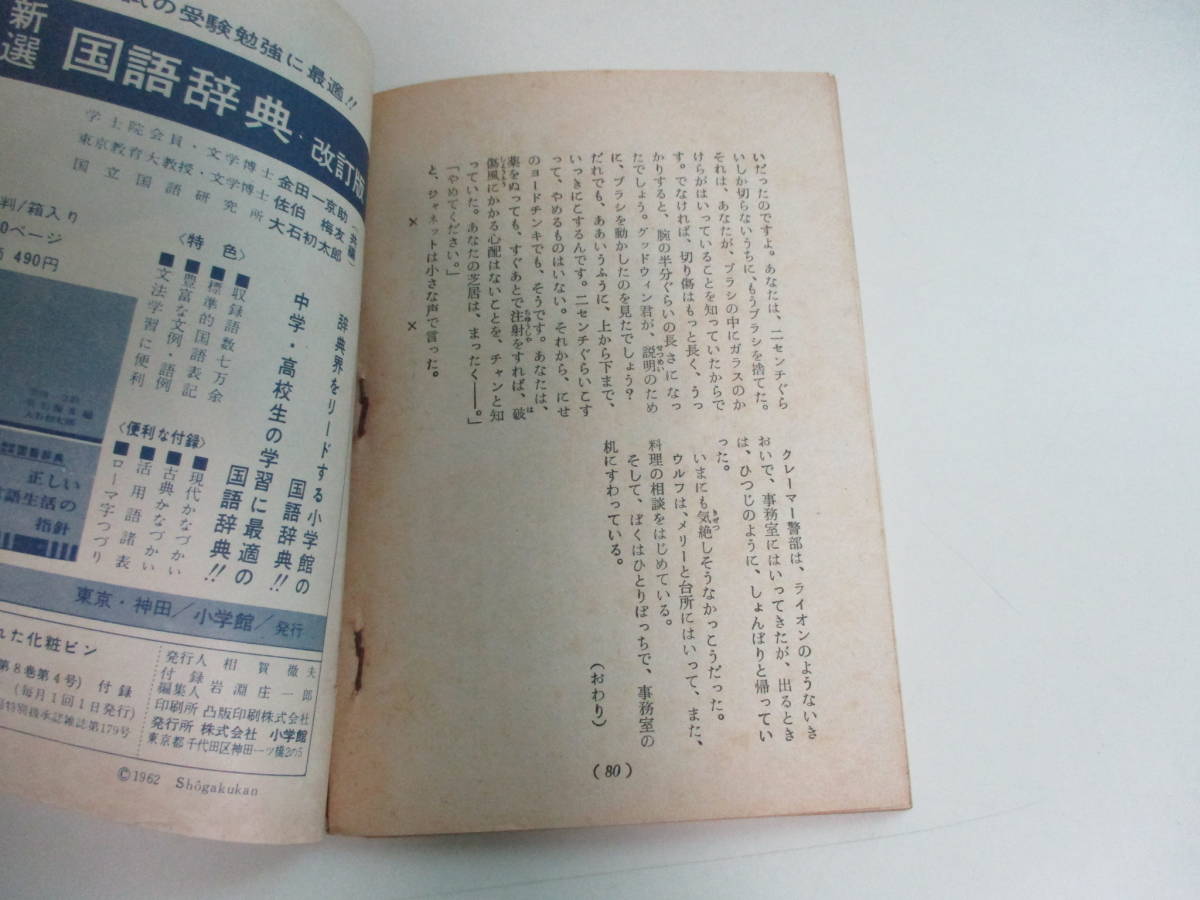 いだったのですよ。あなたは、二センチぐら
いしか切らないうちに、もうブラシを捨てた。
それは、あなたが、ブラシの中にガラスのか
けらがはいっていることを知っていたからで
す。でなければ、切り傷はもっと長く、うっ
かりすると、腕の半分ぐらいの長さになっ
たでしょう。グッドウィン君が、説明のため
に、ブラシを動かしたのを見たでしょう？
だれでも、ああいうふうに、上から下まで、
いっきにこするんです。二センチぐらいこす
って、やめるものはいない。それから、にせ
のヨードチンキでも、そうです。あなたは、
薬をぬっても、すぐあとで注射をすれば、破
傷風にかかる心配はないことを、チャンと知
っていた。あなたの芝居は、まったく――。」
「やめてください。」
と、ジャネットは小さな声で言った。
× ×
クレーマー警部は、ライオンのようないき
おいで、事務室にはいってきたが、出るとき
は、ひつじのように、しょんぼりと帰ってい
った。
いまにも気絶しそうなかっこうだった。
ウルフは、メリーと台所にはいって、また、
料理の相談をはじめている。
そして、ぼくはひとりぼっちで、事務室の
机にすわっている。
（おわり）
(80)
試の受験勉強に最適!!
新選 国語辞典・改訂版
学士院会員・文学博士 金田一京助
東京教育大教授・文学博士 佐伯 梅友
国立国語研究所 大石初太郎
〈共編〉
判/箱入り
0ページ
490円
〈特色〉
■収録語数七万余
■標準的国語表記
■豊富な文例・語例
■文法学習に便利
〈便利な付録〉
■現代かなづかい
■古典かなづかい
■活用語諸表
■ローマ字つづり
辞典界をリードする小学館の
国語辞典!!
中学・高校生の学習に最適の
国語辞典!!
国語辞典
正しい
言語生活の
指針
東京・神田/小学館/発行
れた化粧ビン
第8巻第4号）付録
（毎月1回1日発行）
特別扱承認雑誌第179号
発行人 相賀徹夫
付録編集人 岩淵庄一郎
印刷所 凸版印刷株式会社
発行所 株式会社 小学館
東京都千代田区神田一ツ橋2の5
©1962 Shôgakukan